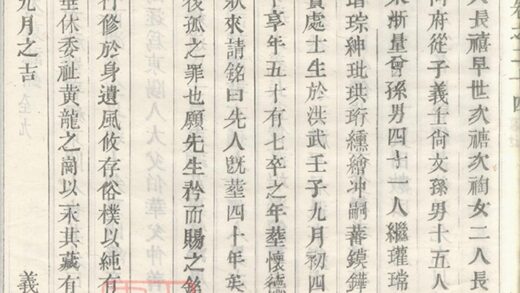 人長禧早世次禟次裪女二人長
何府從子義士尙文孫男十五人
來漸量曾孫男四十一人繼瓘瑞
琮紳玭珙珩纁繪冲嗣蕃鏌鏵
實處士生於洪武壬子九月初四
享年五十有七卒之年塟懷德
狀來請銘曰先人旣塟四十年矣
後孤之罪也願先生矜而賜之銘
行修於身遺風攸存俗樸以純有
垂休委祉黃龍之崗以永其藏有
月之吉 義